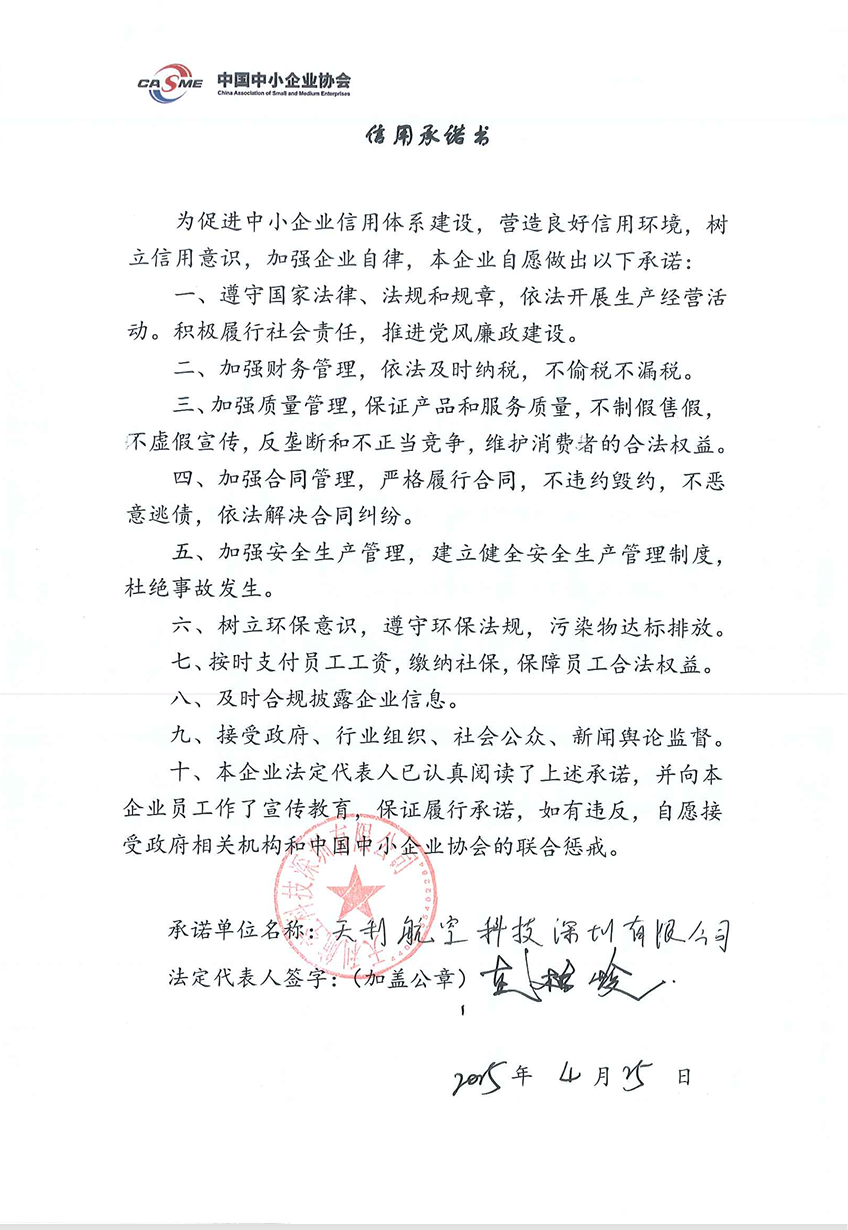 CASME 中国中小企业协会
China Association of Small and Medium Enterprises
信用承诺书
为促进中小企业信用体系建设，营造良好信用环境，树
立信用意识，加强企业自律，本企业自愿做出以下承诺：
一、遵守国家法律、法规和规章，依法开展生产经营活
动。积极履行社会责任，推进党风廉政建设。
二、加强财务管理，依法及时纳税，不偷税不漏税。
三、加强质量管理，保证产品和服务质量，不制假售假，
不虚假宣传，反垄断和不正当竞争，维护消费者的合法权益。
四、加强合同管理，严格履行合同，不违约毁约，不恶
意逃债，依法解决合同纠纷。
五、加强安全生产管理，建立健全安全生产管理制度，
杜绝事故发生。
六、树立环保意识，遵守环保法规，污染物达标排放。
七、按时支付员工工资，缴纳社保，保障员工合法权益。
八、及时合规披露企业信息。
九、接受政府、行业组织、社会公众、新闻舆论监督。
十、本企业法定代表人已认真阅读了上述承诺，并向本
企业员工作了宣传教育，保证履行承诺，如有违反，自愿接
受政府相关机构和中国中小企业协会的联合惩戒。
天利航空科技深圳有限公司
承诺单位名称：天利航空科技深圳有限公司
法定代表人签字：（加盖公章）
1
2015年 4月25日